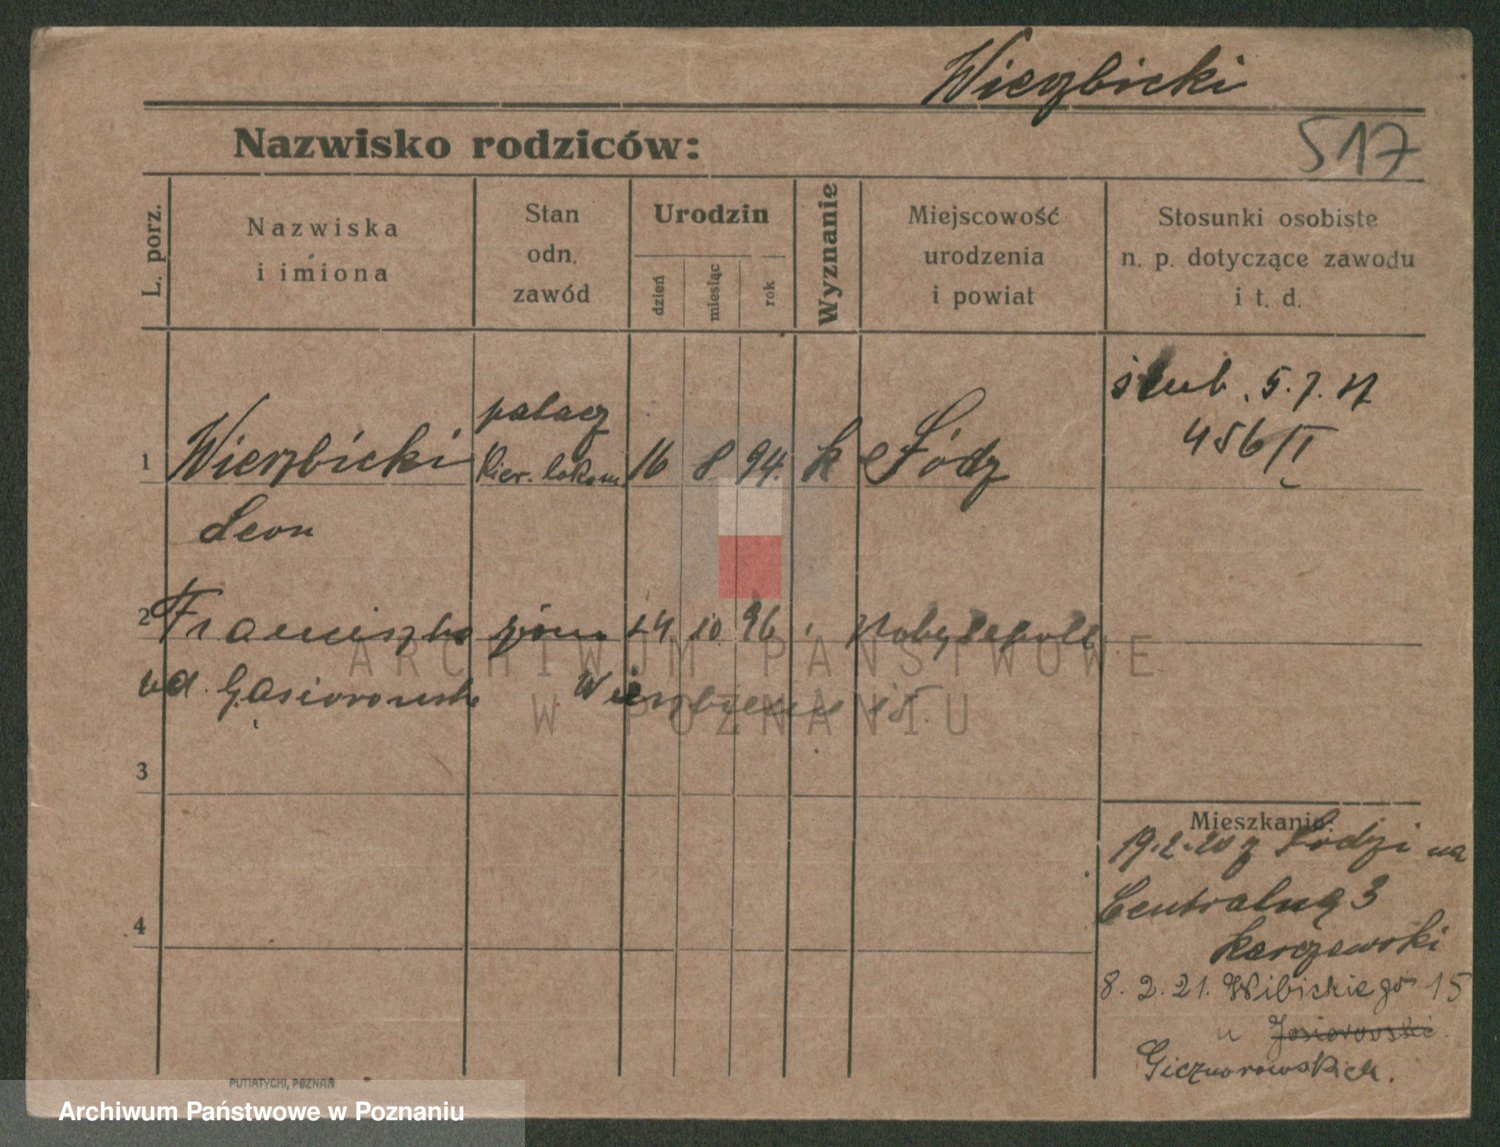 Wierzbicki
Nazwisko rodziców:
517
L. porz.
Nazwiska
i imiona
Stan
odn.
zawód
Urodzin
dzień
miesiąc
rok
Wyznanie
Miejscowość
urodzenia
i powiat
Stosunki osobiste
n. p. dotyczące zawodu
i t. d.
ślub. 5.7.
456/I
palacz
1 Wierzbicki Kier. lokom. 16 8 94. k Łódz
Leon
2 Franciszka żona 24. 10. 96.
ud. Gąsiorowska 15.
ARCHIWUM PAŃSTWOWE
W POZNANIU
3
Mieszkanie:
19.2.20 z Łodzi na
Centralną 3
4
Karczewski
8. 2. 21. Wibickiego 15
u
PUTIATYCKI, POZNAŃ
Archiwum Państwowe w Poznaniu